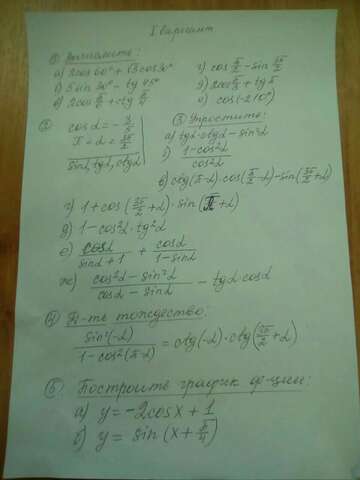 I вариант
① Вычислить:
а) 2cos60° + √3cos30°
б) 5sin30° − tg45°
в) 2cos π/6 + ctg π/4
г) cos π/2 − sin 3π/2
е) cos(−210°)
② cosα = −3/5
π < α < 3π/2
sinα, tgα, ctgα
③ Упростить:
а) tgα·ctgα − sin²α
б) (1−cos²α)/(cos²α)
в) ctg(π−α)·cos(π/2−α)−sin(3π/2+α)
г) 1+cos(3π/2+α)·sin(π+α)
д) 1−cos²α·tg²α
е) cosα/(sinα+1) + cosα/(1−sinα)
ж) (cos²α−sin²α)/(cosα−sinα) − tgα·cosα
④ Д-ть тождество:
sin²(−α)/(1−cos²(π−α)) = ctg(−α)·ctg(3π/2+α)
⑤ Построить график ф-ции:
а) y=−2cosx+1
б) y=sin(x+π/4)